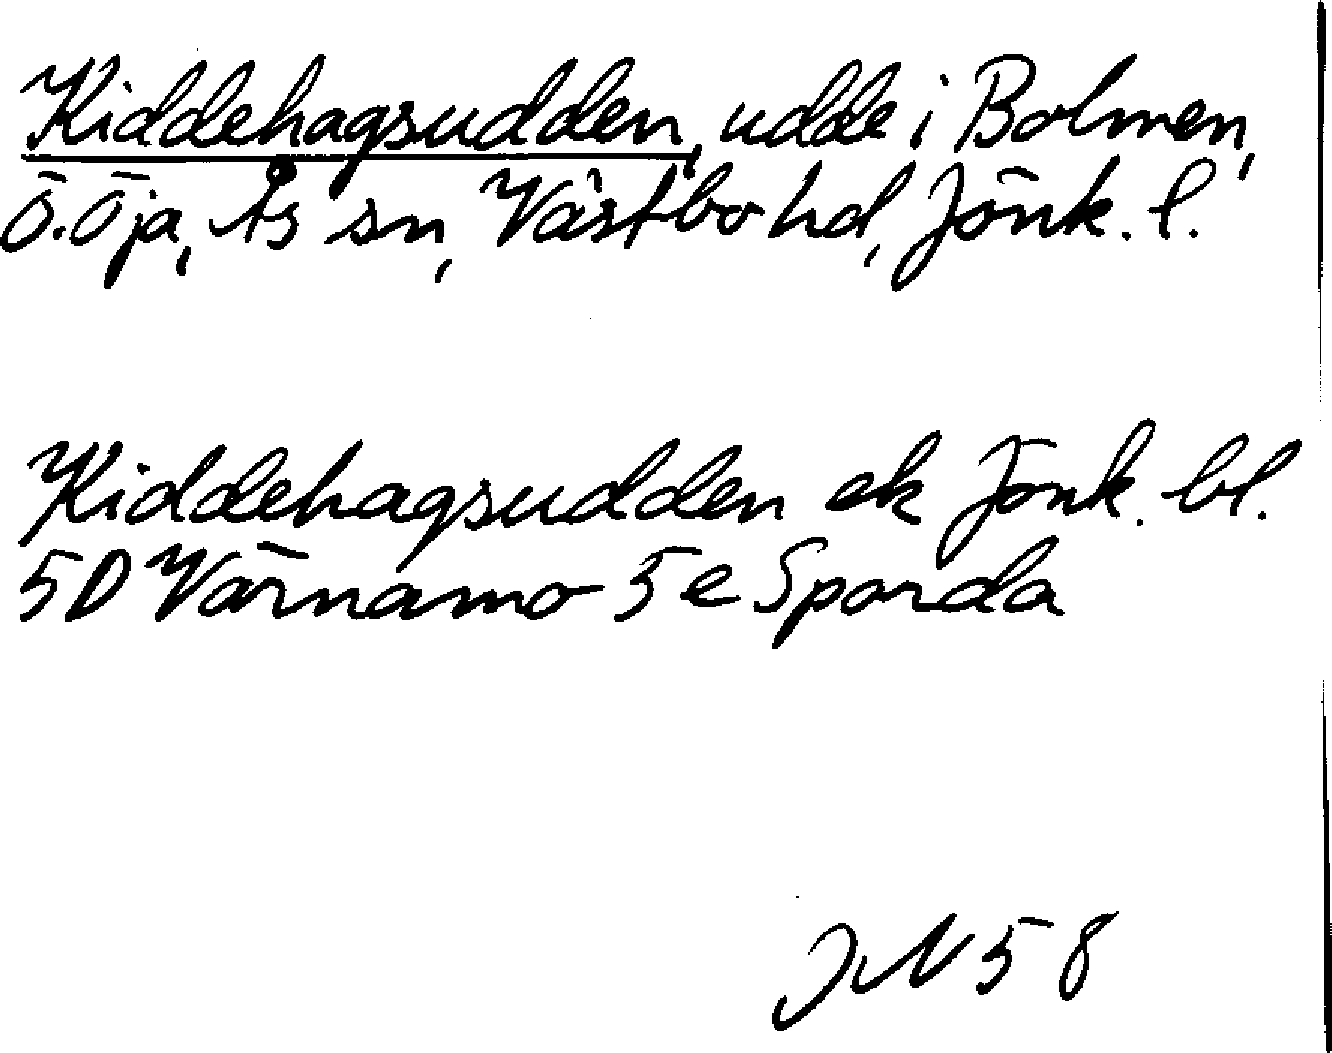 Kiddehagsudden, udde i Bolmen,
Ö. Öja, Ås sn, Västbo hd, Jönk. l.
Kiddehagsudden ek Jönk. bl.
5D Värnamo 5e Sporda
JN 58